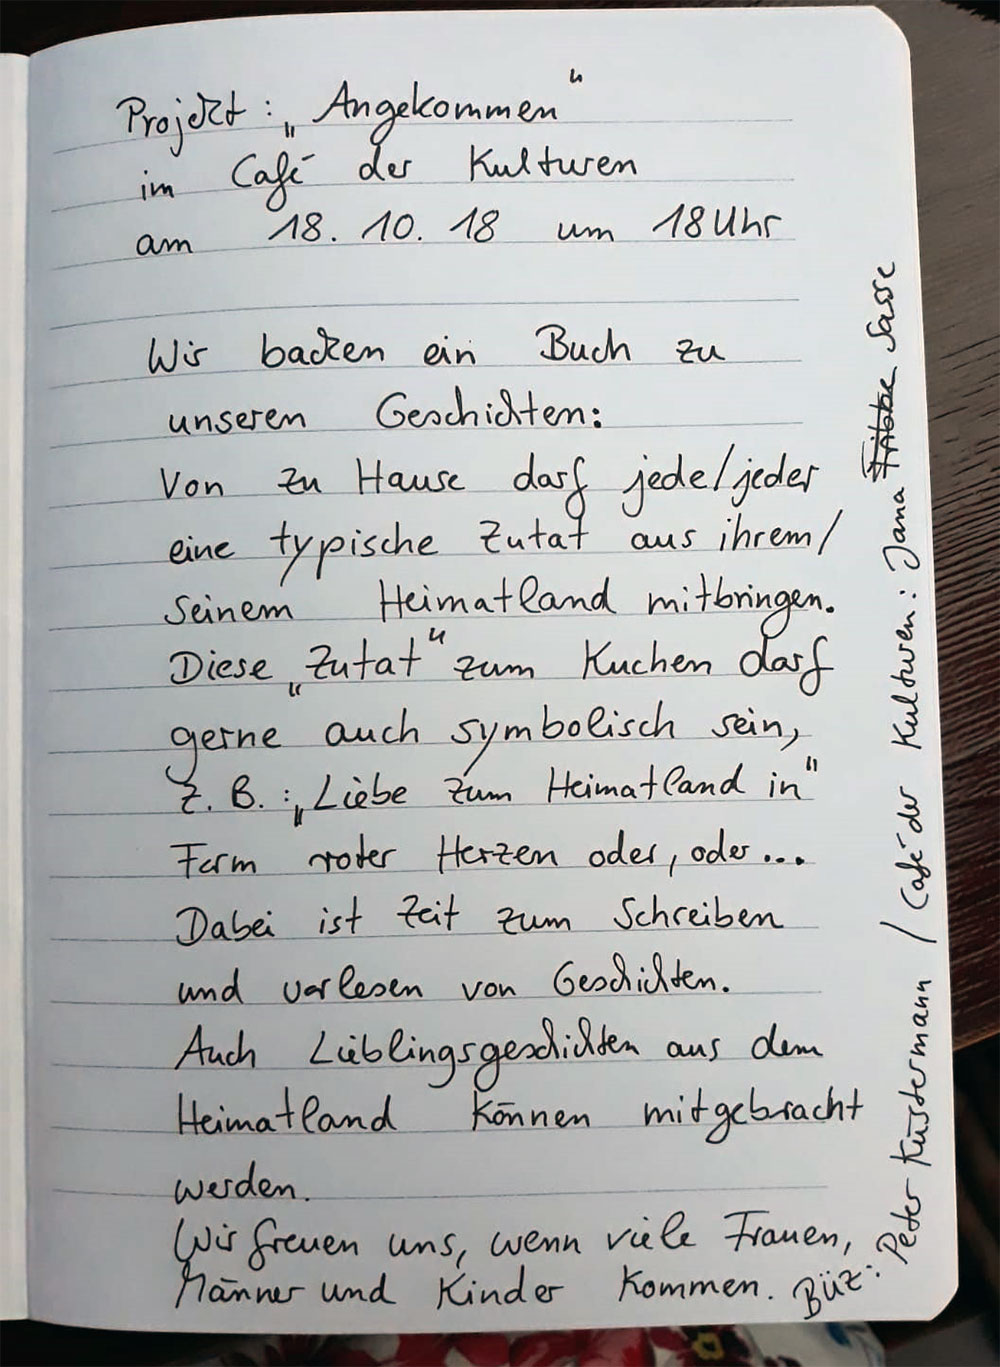 Projekt: „Angekommen"
im Café der Kulturen
am 18. 10. 18 um 18 Uhr
Wir backen ein Buch zu
unseren Geschichten:
Von zu Hause darf jede/jeder
eine typische Zutat aus ihrem/
seinem Heimatland mitbringen.
Diese „Zutat" zum Kuchen darf
gerne auch symbolisch sein,
z. B.: „Liebe zum Heimatland in"
Form roter Herzen oder, oder...
Dabei ist Zeit zum Schreiben
und vorlesen von Geschichten.
Auch Lieblingsgeschichten aus dem
Heimatland können mitgebracht
werden.
Wir freuen uns, wenn viele Frauen,
Männer und Kinder kommen.
Büz: Peter Küstermann / Café der Kulturen: Jana Sasse